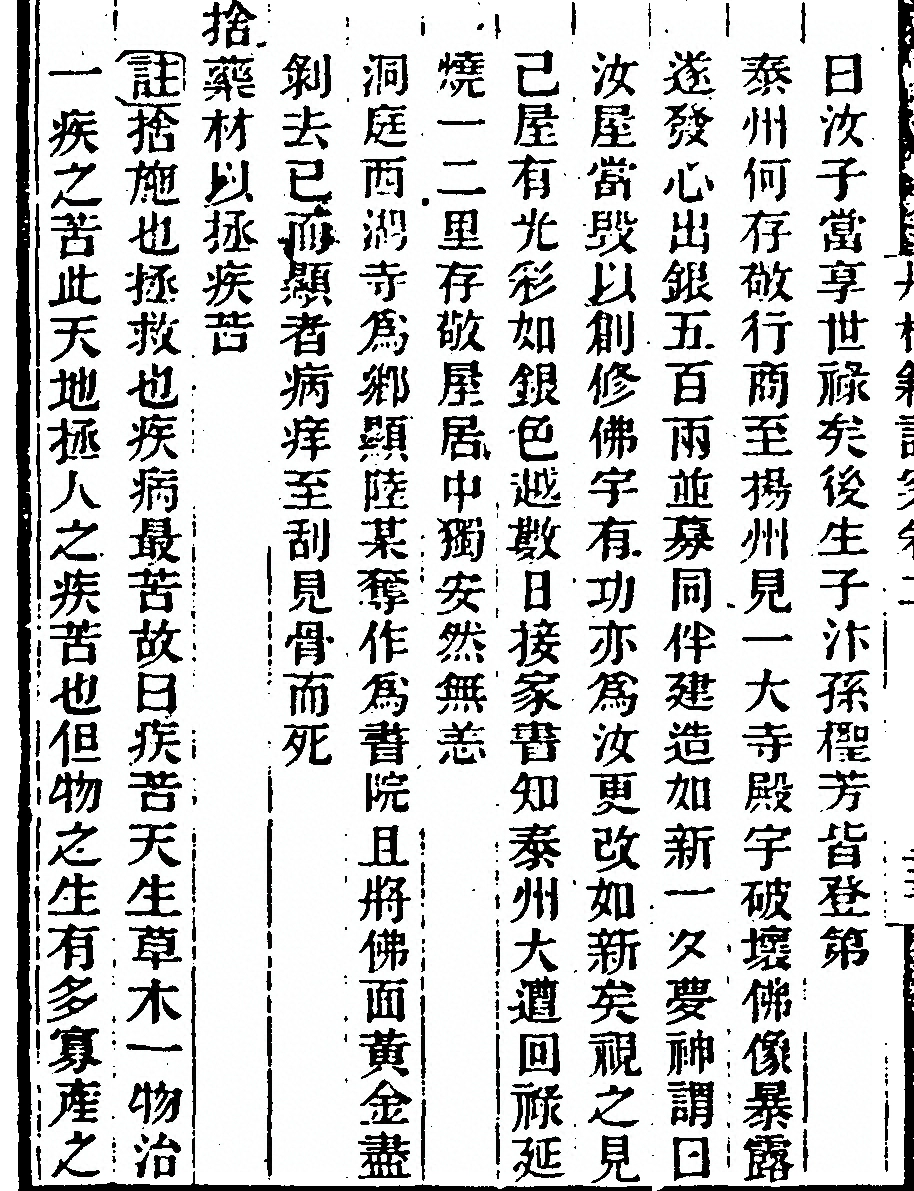 曰汝子當享世祿矣後生子汴孫檉芳皆登第
泰州何存敬行商至揚州見一大寺殿宇破壞佛像暴露
遂發心出銀五百兩並募同伴建造如新一夕夢神謂曰
汝屋當毀以創修佛宇有功亦爲汝更改如新矣視之見
己屋有光彩如銀色越數日接家書知泰州大遭回祿延
燒一二里存敬屋居中獨安然無恙
洞庭西湖寺爲鄉顯陸某奪作爲書院且將佛面黃金盡
剝去已而顯者病痒至刮見骨而死
捨藥材以拯疾苦
註捨施也拯救也疾病最苦故曰疾苦天生草木一物治
一疾之苦此天地拯人之疾苦也但物之生有多寡產之